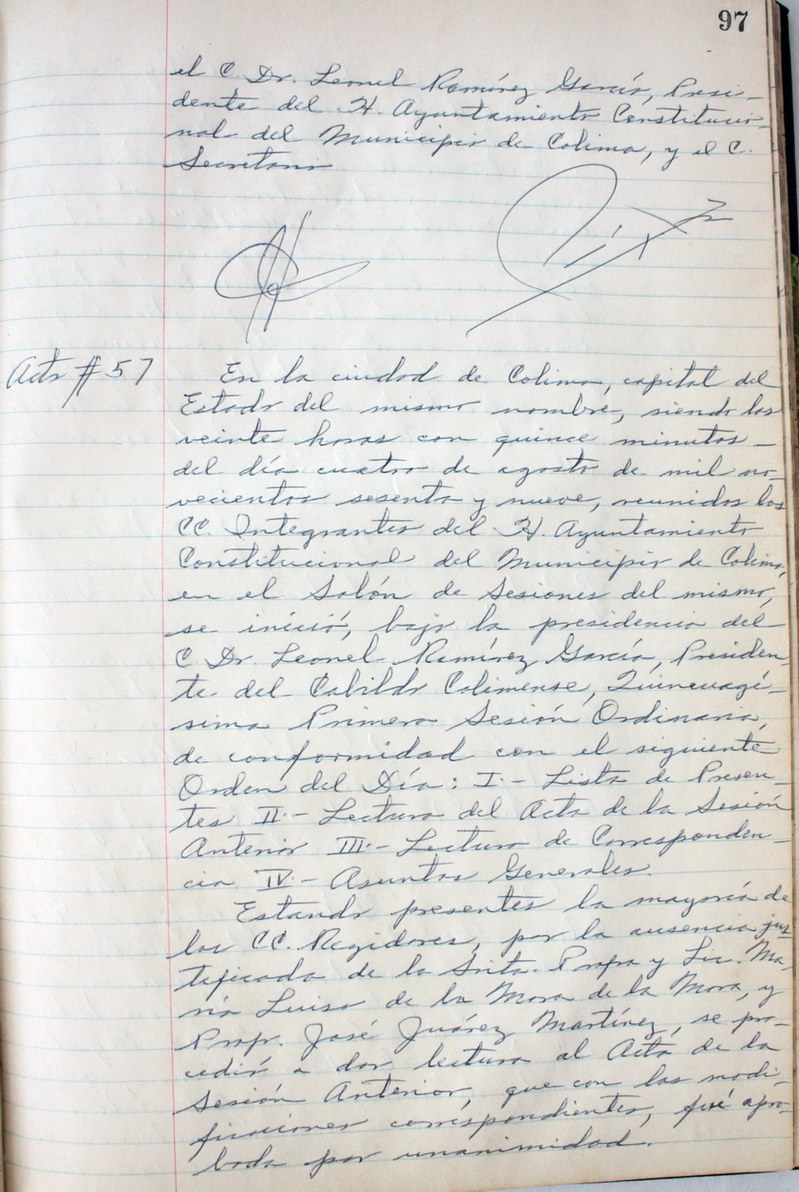 97
el C. Dr. Leonel Ramírez García, Presi-
dente del H. Ayuntamiento Constitucio-
nal del Municipio de Colima, y el C.
Secretario
Acta # 57
En la ciudad de Colima, capital del
Estado del mismo nombre, siendo las
veinte horas con quince minutos -
del día cuatro de agosto de mil no-
vecientos sesenta y nueve, reunidos los
CC. Integrantes del H. Ayuntamiento
Constitucional del Municipio de Colima,
en el Salón de Sesiones del mismo,
se inició, bajo la presidencia del
C Dr. Leonel Ramírez García, Presiden-
te del Cabildo Colimense, Quincuagé-
sima Primera Sesión Ordinaria,
de conformidad con el siguiente
Orden del Día: I.- Lista de Presen-
tes II.- Lectura del Acta de la Sesión
Anterior III.- Lectura de Corresponden-
cia IV.- Asuntos Generales.
Estando presentes la mayoría de
los CC. Regidores, por la ausencia jus-
tificada de la Srita. Profa y Lic. Ma-
ría Luisa de la Mora de la Mora, y
Profr. José Juárez Martínez, se pro-
cedió a dar lectura al Acta de la
Sesión Anterior, que con las modi-
ficaciones correspondientes, fué apro-
bada por unanimidad.